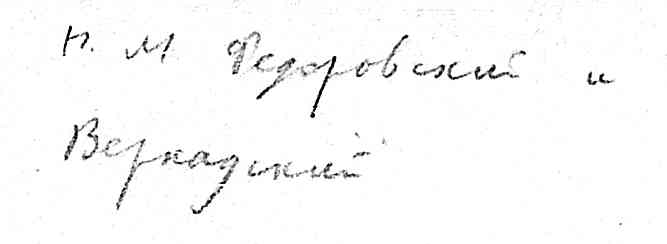 Н. М Федоровский и
Вернадский